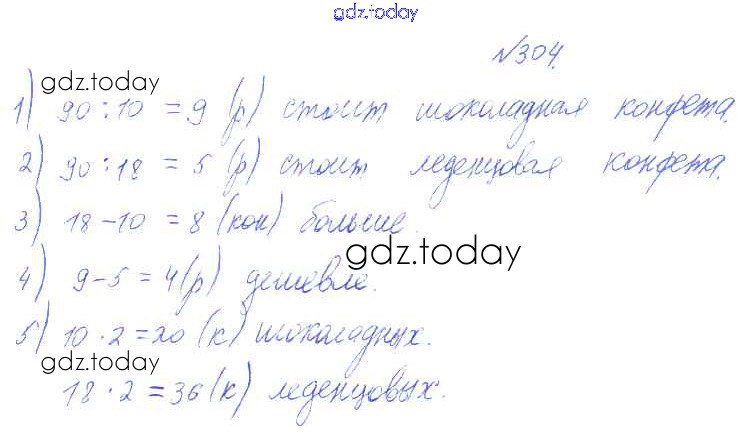 gdz.today
№304.
gdz.today
1) 90:10 = 9 (р) стоит шоколадная конфета.
2) 90:18 = 5 (р) стоит леденцовая конфета.
3) 18-10 = 8 (кон) больше.
gdz.today
4) 9-5=4(р) дешевле.
5) 10·2=20 (к) шоколадных.
gdz.today
18·2=36(к) леденцовых.